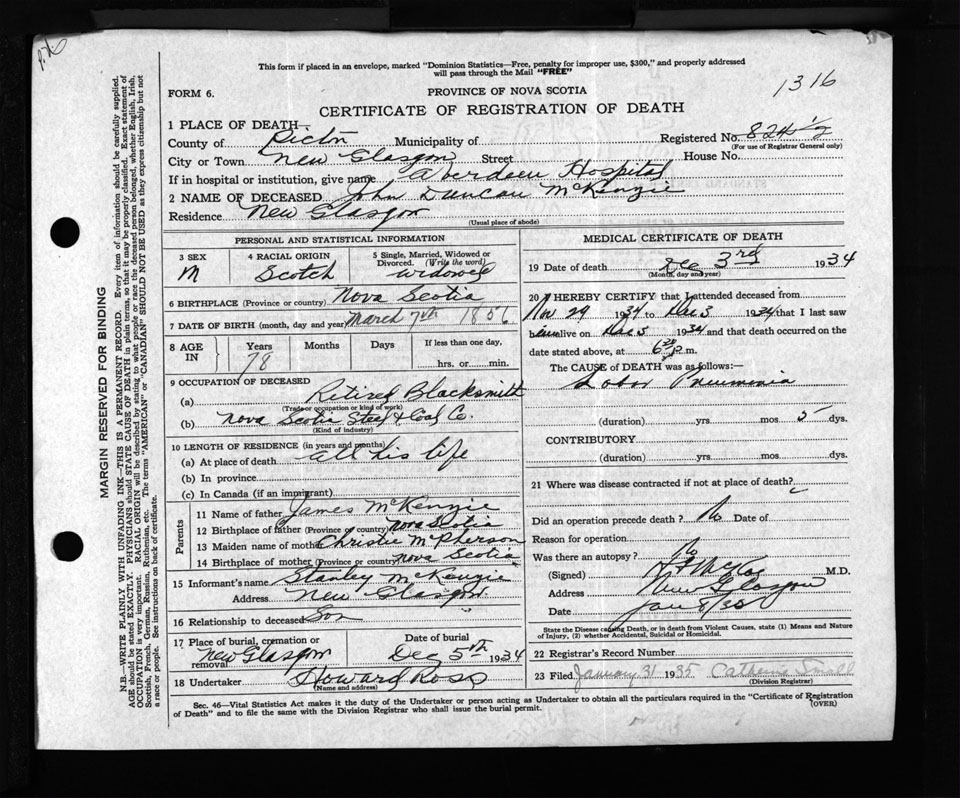 This form if placed in an envelope, marked "Dominion Statistics—Free, penalty for improper use, $300," and properly addressed
will pass through the Mail "FREE"
1316
FORM 6.
PROVINCE OF NOVA SCOTIA
CERTIFICATE OF REGISTRATION OF DEATH
1 PLACE OF DEATH—
County of Pictou Municipality of Registered No. 824 1/2
(For use of Registrar General only)
City or Town New Glasgow Street House No.
If in hospital or institution, give name Aberdeen Hospital
2 NAME OF DECEASED John Duncan McKenzie
Residence New Glasgow
(Usual place of abode)
PERSONAL AND STATISTICAL INFORMATION
3 SEX 4 RACIAL ORIGIN 5 Single, Married, Widowed or Divorced. (Write the word)
M Scotch Widowed
6 BIRTHPLACE (Province or country) Nova Scotia
7 DATE OF BIRTH (month, day and year) March 7th 1856
8 AGE IN Years Months Days If less than one day,
78 hrs. or min.
9 OCCUPATION OF DECEASED
(a) Retired Blacksmith
(Trade occupation or kind of work)
(b) Nova Scotia Steel & Coal Co.
(Kind of industry)
10 LENGTH OF RESIDENCE (in years and months)
(a) At place of death all his life
(b) In province
(c) In Canada (if an immigrant)
Parents
11 Name of father James McKenzie
12 Birthplace of father (Province or country) Nova Scotia
13 Maiden name of mother Christie McPherson
14 Birthplace of mother (Province or country) Nova Scotia
15 Informant's name Stanley McKenzie
Address New Glasgow
16 Relationship to deceased Son
17 Place of burial, cremation or removal Date of burial
New Glasgow Dec 5th 1934
18 Undertaker Howard Ross
(Name and address)
MEDICAL CERTIFICATE OF DEATH
19 Date of death Dec 3rd 1934
(Month, day and year)
20 I HEREBY CERTIFY that I attended deceased from
Nov 29 1934 to Dec 3 1934 that I last saw
him alive on Dec 3 1934 and that death occurred on
date stated above, at 6 p m.
The CAUSE of DEATH was as follows:—
Lobar Pneumonia
(duration) yrs. mos 5 dys.
CONTRIBUTORY
(duration) yrs. mos. dys.
21 Where was disease contracted if not at place of death?
Did an operation precede death ? No Date of
Reason for operation
Was there an autopsy ? No
(Signed) M.D.
Address New Glasgow
Date Jan 8/35
State the Disease causing Death, or in death from Violent Causes, state (1) Means and Nature
of Injury, (2) whether Accidental, Suicidal or Homicidal.
22 Registrar's Record Number
23 Filed January 31 1935 Catherine
(Division Registrar)
Sec. 46—Vital Statistics Act makes it the duty of the Undertaker or person acting as Undertaker to obtain all the particulars required in the "Certificate of Registration
of Death" and to file the same with the Division Registrar who shall issue the burial permit. (OVER)
MARGIN RESERVED FOR BINDING
N.B.—WRITE PLAINLY WITH UNFADING INK—THIS IS A PERMANENT RECORD. Every item of information should be carefully supplied.
AGE should be stated EXACTLY. PHYSICIANS should STATE CAUSE OF DEATH in plain terms, so that it may be properly classified. Exact statement of
OCCUPATION is very important. RACIAL ORIGIN will be described by stating to what people or race the deceased person belonged, whether English, Irish,
Scottish, French, German, Russian, Ruthenian, etc. The terms "AMERICAN" or "CANADIAN" SHOULD NOT BE USED as they express citizenship but not
a race or people. See instructions on back of certificate.